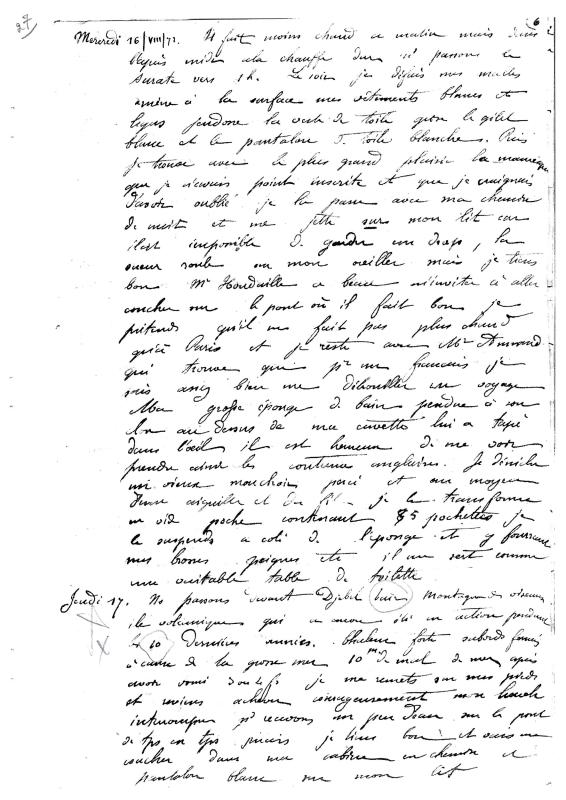 27
6
Mercredi 16/VIII/71. Il fait moins chaud ce matin mais dans
l'après midi cela chauffe dur ns passons le
Surate vers 1h. Le soir je défais mes malles
amène à la surface mes vêtements blancs et
legers j'endosse la veste de toile grise le gilet
blanc et le pantalon de toile blanche. Puis
je trouve avec le plus grand plaisir la mauresque
que je n'avais point inscrite et que je craignais
d'avoir oublié je la passe avec ma chemise
de nuit et me jette sur mon lit car
il est impossible de garder un drap, la
sueur roule sur mon oreiller mais je tiens
bon Mr Houdaille a beau m'inviter à aller
coucher sur le pont où il fait bon je
prétends qu'il ne fait pas plus chaud
qu'à Paris et je reste avec Mr
qui trouve que pr un français je
sais assez bien me débrouiller en voyage
Ma grosse éponge de bain pendue à son
au dessus de ma cuvette lui a tapé
dans l'oeil il est heureux de me voir
prendre ainsi les coutumes anglaises. Je déniche
un vieux mouchoir percé et au moyen
d'une aiguille et du fil je le transforme
en vide poche contenant 5 pochettes je
le suspends a coté de l'éponge et y fourrant
mes brosses peignes etc il me sert comme
une véritable table de toilette
Jeudi 17. Ns passons devant Djebel Montagne des oiseaux
île volcanique qui a encore été en action pendant
les 10 dernières années. Chaleur forte sabords fermés
à cause de la grosse mer 10 m de mal de mer, après
avoir vomi je me remets sur mes pieds
et reviens achever courageusement mon lunch
interrompu ns recevons un peu d'eau sur le pont
de tps en tps je tiens bon et vais me
coucher dans ma cabine en chemise et
pantalon blanc sur mon lit